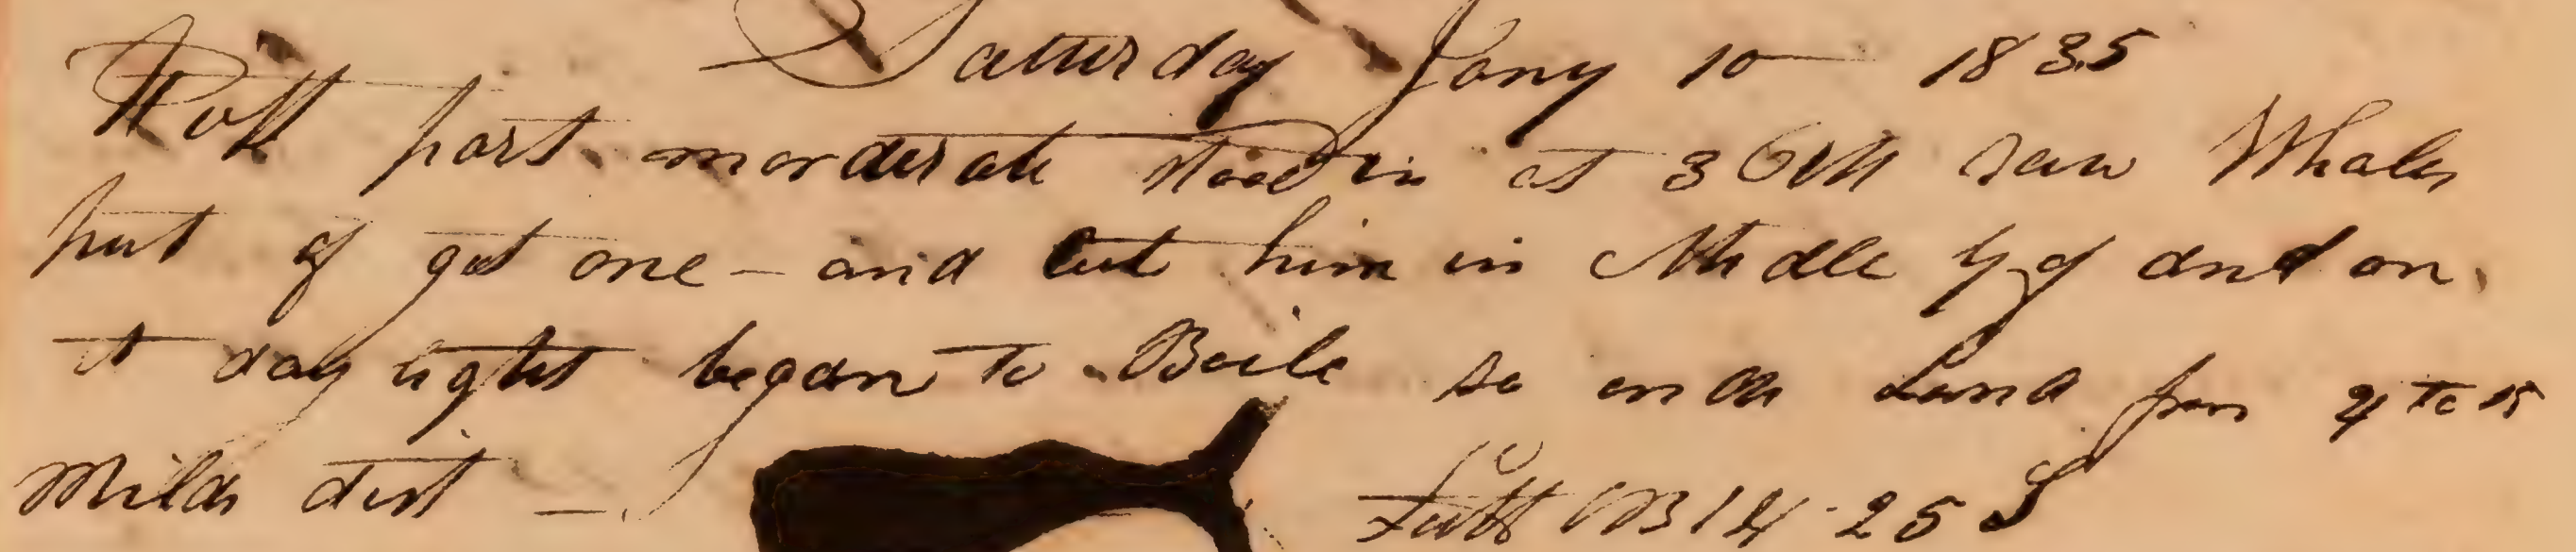 Satturday Jany 10 1835
Fost part morderate stood in at 3 PM saw Whales
put of got one - and cut him in Midle of and on
at day light began to Boile so ends Land from 4 to 15
Miles dist -
Latt 14.25 S